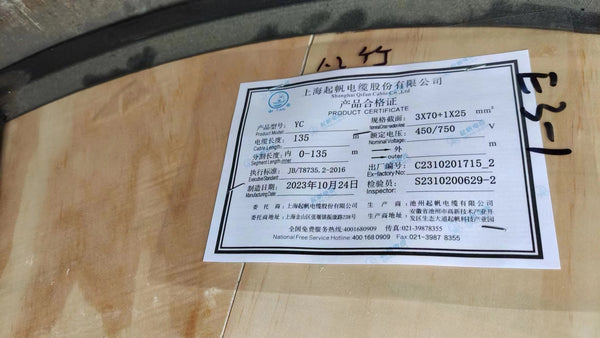 上海起帆电缆股份有限公司
Shanghai Qifan Cable Co.,Ltd
产品合格证
PRODUCT CERTIFICATE
产品型号: YC 规格截面: 3X70+1X25 mm²
Product Model
电缆长度: 135 m 额定电压: 450/750 V
Cable Length: Nominal Voltage:
分割长度: 内 0-135 m 外
Segment Length inner outer
执行标准: JB/T8735.2-2016 出厂编号: C2310201715_2
Executive Standard Ex-factory No:
制造日期: 2023年10月24日 检验员: S2310200629-2
Manufacturing Date: Inspector:
委托商: 上海起帆电缆股份有限公司 生产商: 池州起帆电缆有限公司
委托商地址: 上海金山区张堰镇振康路238号 生产商地址: 安徽省池州市高新技术产业开发区生态大道起帆科技产业园
全国免费服务热线:4001680909 传真:021-39878355
National Free Service Hotline: 400 168 0909 Fax 021-3987 8355
E3-1